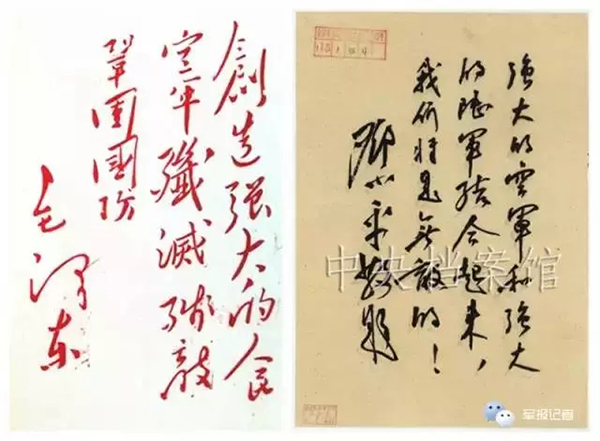 創造强大的人民
空軍殲滅殘敵
鞏固國防
毛澤东
强大的空軍和强大
的陸軍结合起来,
我们将是无敵的!
鄧小平敬題
中央档案馆
军报记者